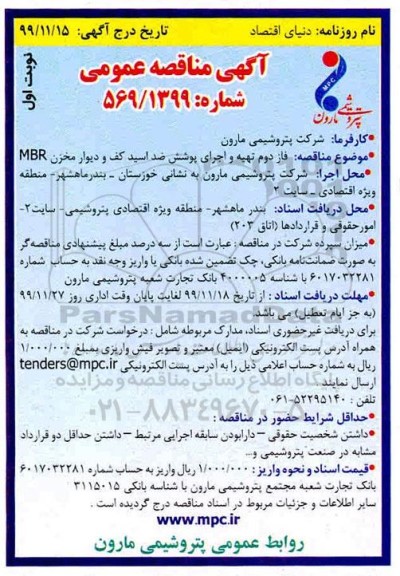 نام روزنامه: دنیای اقتصاد
تاریخ درج آگهی: ۹۹/۱۱/۱۵
نوبت اول
آگهی مناقصه عمومی
شماره: ۵۶۹/۱۳۹۹
MPC
پتروشیمی مارون
•کارفرما: شرکت پتروشیمی مارون
•موضوع مناقصه: فاز دوم تهیه و اجرای پوشش ضد اسید کف و دیوار مخزن MBR
•محل اجرا: شرکت پتروشیمی مارون به نشانی خوزستان - بندرماهشهر- منطقه
ویژه اقتصادی - سایت ۲
•محل دریافت اسناد: بندر ماهشهر- منطقه ویژه اقتصادی پتروشیمی- سایت۲-
امورحقوقی و قراردادها (اتاق ۲۰۳)
•میزان سپرده شرکت در مناقصه : عبارت است از سه درصد مبلغ پیشنهادی مناقصه‌گر
به صورت ضمانت‌نامه بانکی، چک تضمین شده بانکی یا واریز وجه نقد به حساب شماره
۶۰۱۷۰۳۲۲۸۱ با شناسه ۴۰۰۰۰۰۵ بانک تجارت شعبه پتروشیمی مارون
•مهلت دریافت اسناد : از تاریخ ۹۹/۱۱/۱۸ لغایت پایان وقت اداری روز ۹۹/۱۱/۲۷
(به جز ایام تعطیل) می باشد.
برای دریافت غیرحضوری اسناد، مدارک مربوطه شامل : درخواست شرکت در مناقصه به
همراه آدرس پست الکترونیکی (ایمیل) معتبر و تصویر فیش واریزی بمبلغ ۱/۰۰۰/۰۰۰
ریال به شماره حساب اعلامی ذیل را به آدرس پست الکترونیکی tenders@mpc.ir
ارسال نمایند.
تلفن : ۰۶۱-۵۲۲۹۵۱۴۰
•حداقل شرایط حضور در مناقصه :
-داشتن شخصیت حقوقی – دارابودن سابقه اجرایی مرتبط – داشتن حداقل دو قرارداد
مشابه در صنعت پتروشیمی و...
•قیمت اسناد و نحوه واریز : ۱/۰۰۰/۰۰۰ ریال واریز به حساب شماره ۶۰۱۷۰۳۲۲۸۱
بانک تجارت شعبه مجتمع پتروشیمی مارون با شناسه بانکی ۳۱۱۵۰۱۵
سایر اطلاعات و جزئیات مربوط در اسناد مناقصه درج گردیده است .
www.mpc.ir
روابط عمومی پتروشیمی مارون
ParsNamad
پایگاه اطلاع رسانی مناقصه و مزایده
۰۲۱-۸۸۳۴۹۶۷۰